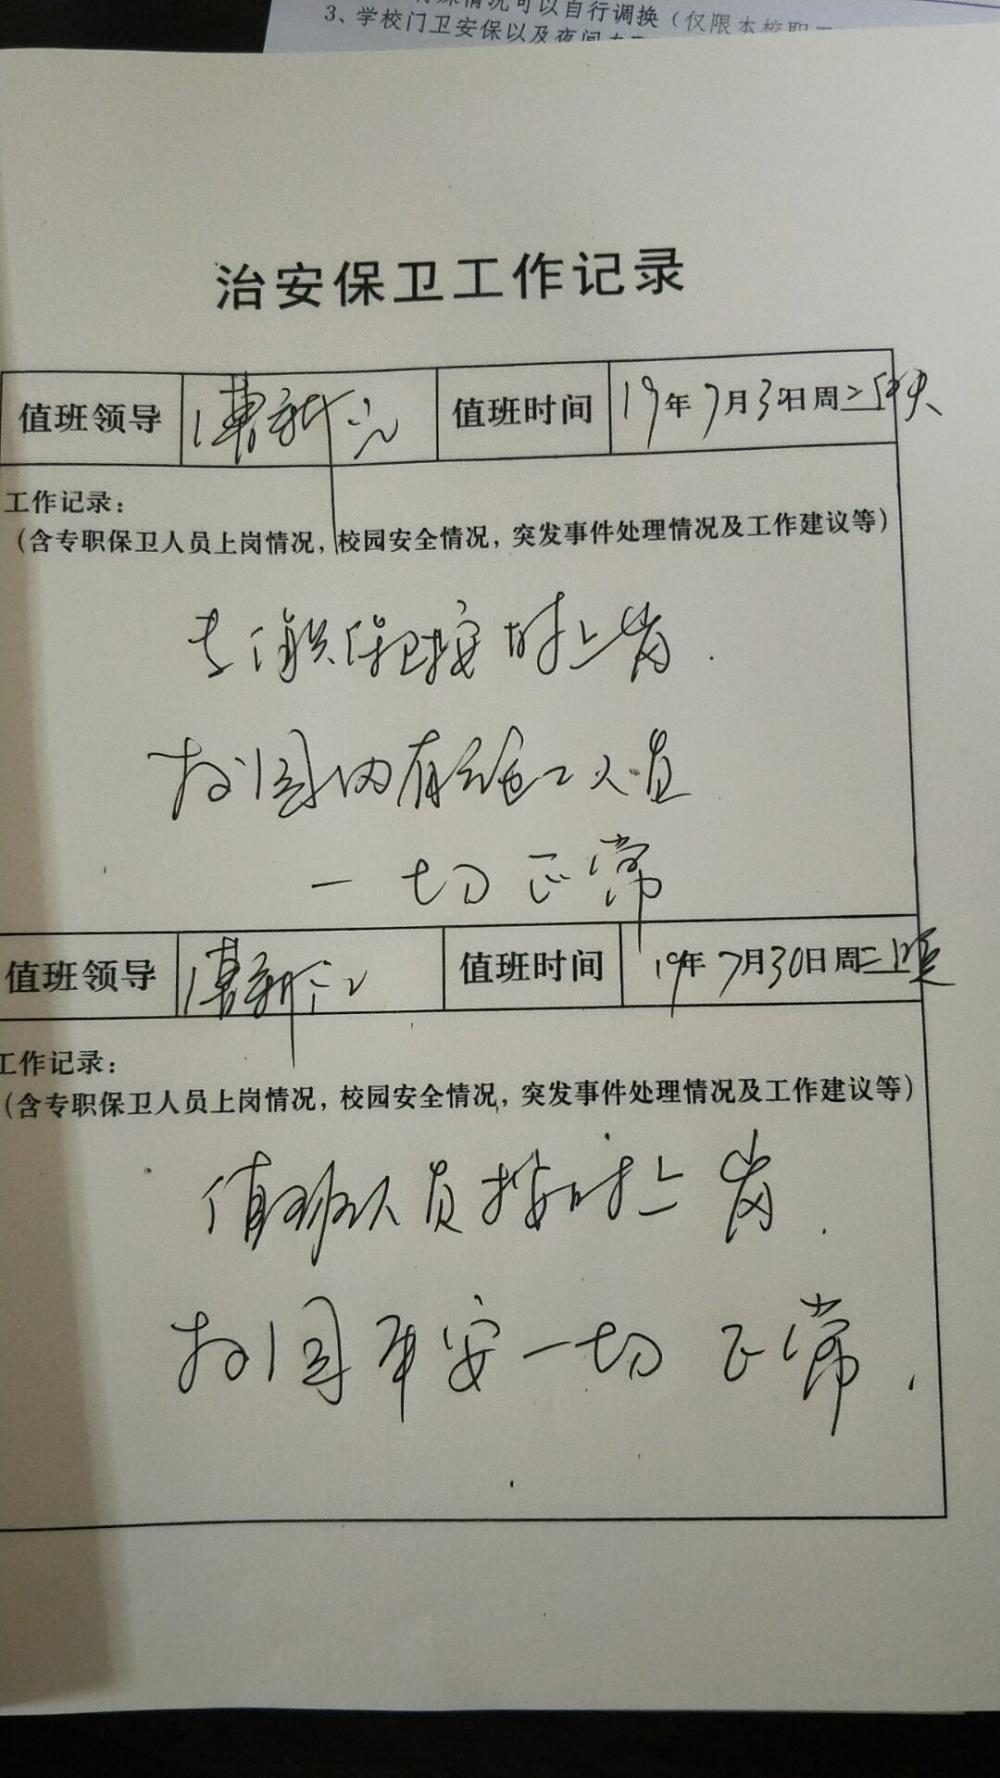 情况可以自行调换（仅限本校职
3、学校门卫安保以及夜间
治安保卫工作记录
值班领导
值班时间 19年7月30日周二白天
工作记录：
（含专职保卫人员上岗情况，校园安全情况，突发事件处理情况及工作建议等）
专职保卫按时上岗.
校园内有施工人员
一切正常
值班领导
值班时间 19年7月30日周二晚
工作记录：
（含专职保卫人员上岗情况，校园安全情况，突发事件处理情况及工作建议等）
值班人员按时上岗.
校园平安一切正常.